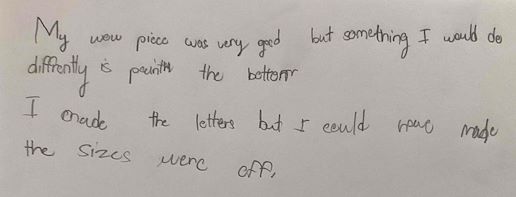 My wow piece was very good but something I would do
diffrently is paint the bottom
I made the letters but I could have made
the sizes were off.